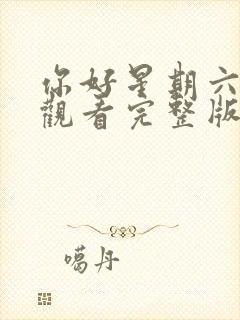 你好星期六
觀看完整版
噶丹